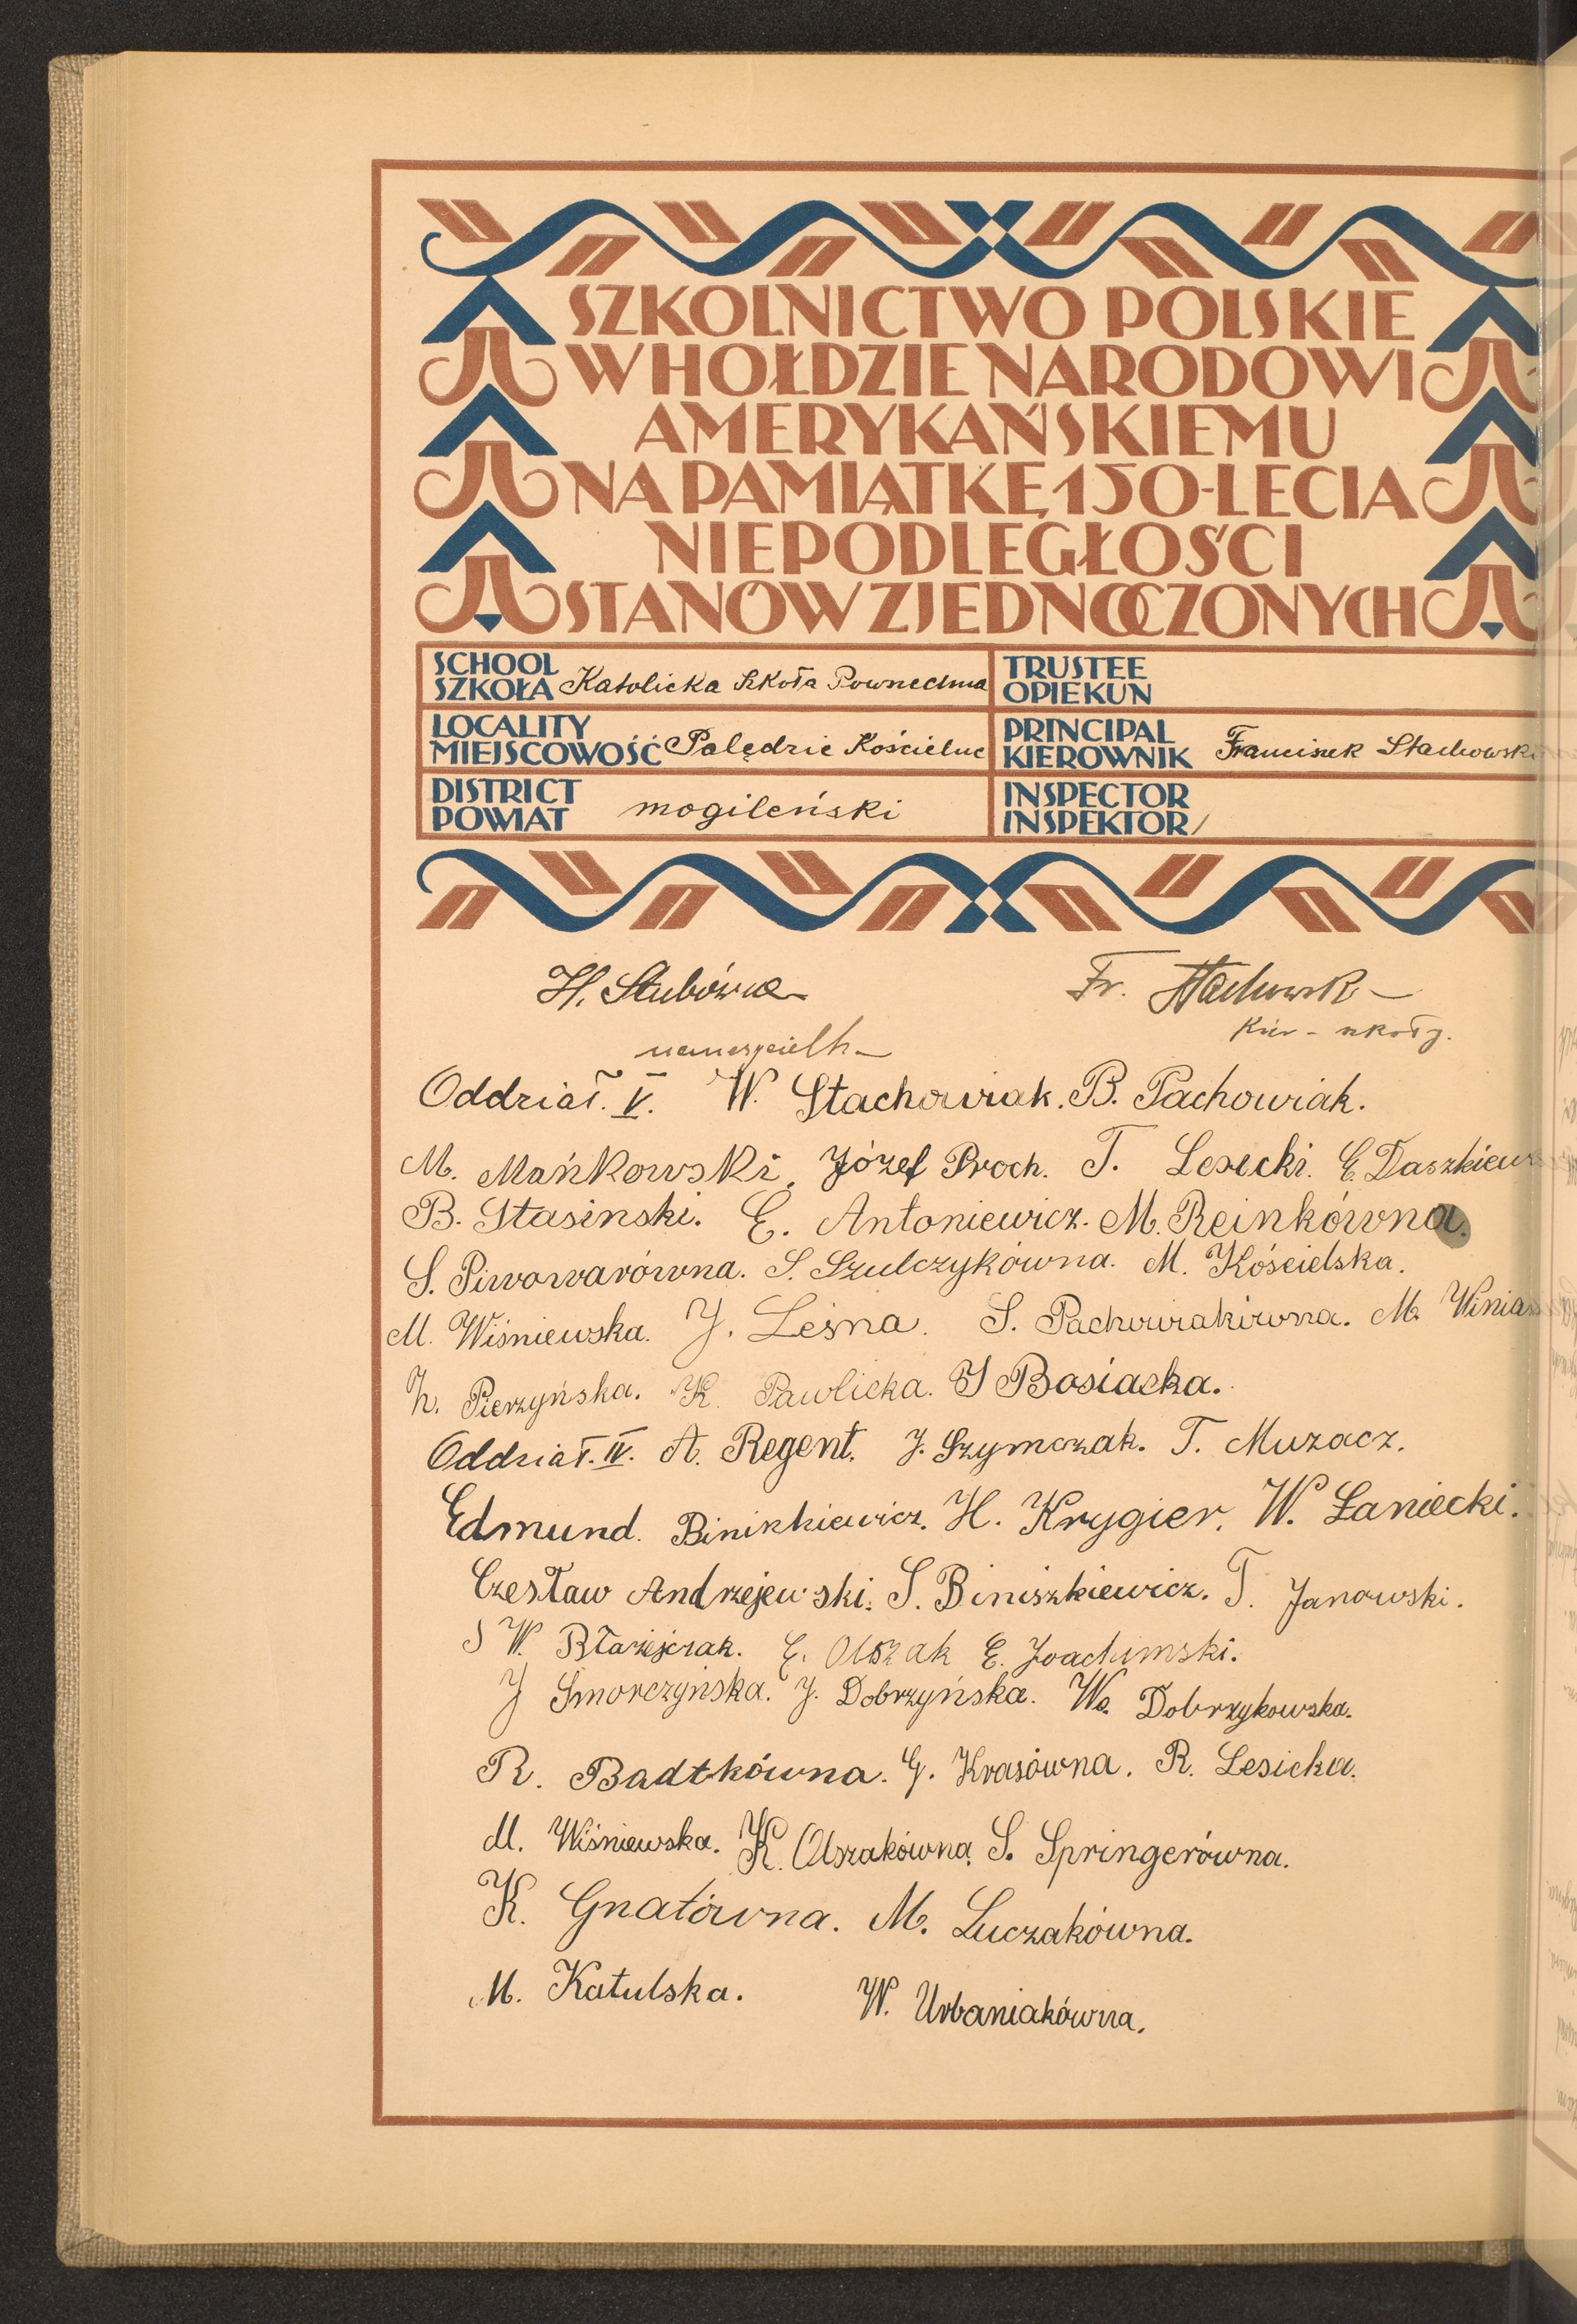 SZKOLNICTWO POLSKIE
W HOŁDZIE NARODOWI
AMERYKAŃSKIEMU
NA PAMIĄTKĘ 150-LECIA
NIEPODLEGŁOŚCI
STANÓW ZJEDNOCZONYCH
SCHOOL
SZKOŁA Katolicka Szkoła Powszechna
TRUSTEE
OPIEKUN
LOCALITY
MIEJSCOWOŚĆ Palędzie Kościelne
PRINCIPAL
KIEROWNIK Franciszek Stachowski
DISTRICT
POWIAT mogileński
INSPECTOR
INSPEKTOR /
H. Stubówna Fr. Stachowski
nauczycielk. Kier. szkoły.
Oddział. V. W. Stachowiak. B. Pachowiak.
M. Mańkowski. Józef Proch. T. Lesecki. E. Daszkiew
B. Stasinski. E. Antoniewicz. M. Reinkówna.
S. Piwowarówna. S. Szulczykówna. M. Kościelska.
M. Wiśniewska. J. Leśna. S. Pachowiakówna. M. Winia
Z. Pierzyńska. K. Pawlicka. J Bosiacka.
Oddział. IV. A. Regent. J. Szymczak. T. Muzacz.
Edmund. Biniszkiewicz. H. Krygier. W. Łaniecki.
Czesław Andrzejewski. S. Biniszkiewicz. T. Janowski.
W. Błażejczak. E. Olszak E. Joachimski.
J Smorczyńska. J. Dobrzyńska. Wa. Dobrzykowska.
R. Badtkówna. G. Krasówna. R. Lesicka.
M. Wiśniewska. K. Olszakówna. S. Springerówna.
K. Gnatówna. M. Luczakówna.
M. Katulska. W. Urbaniakówna.